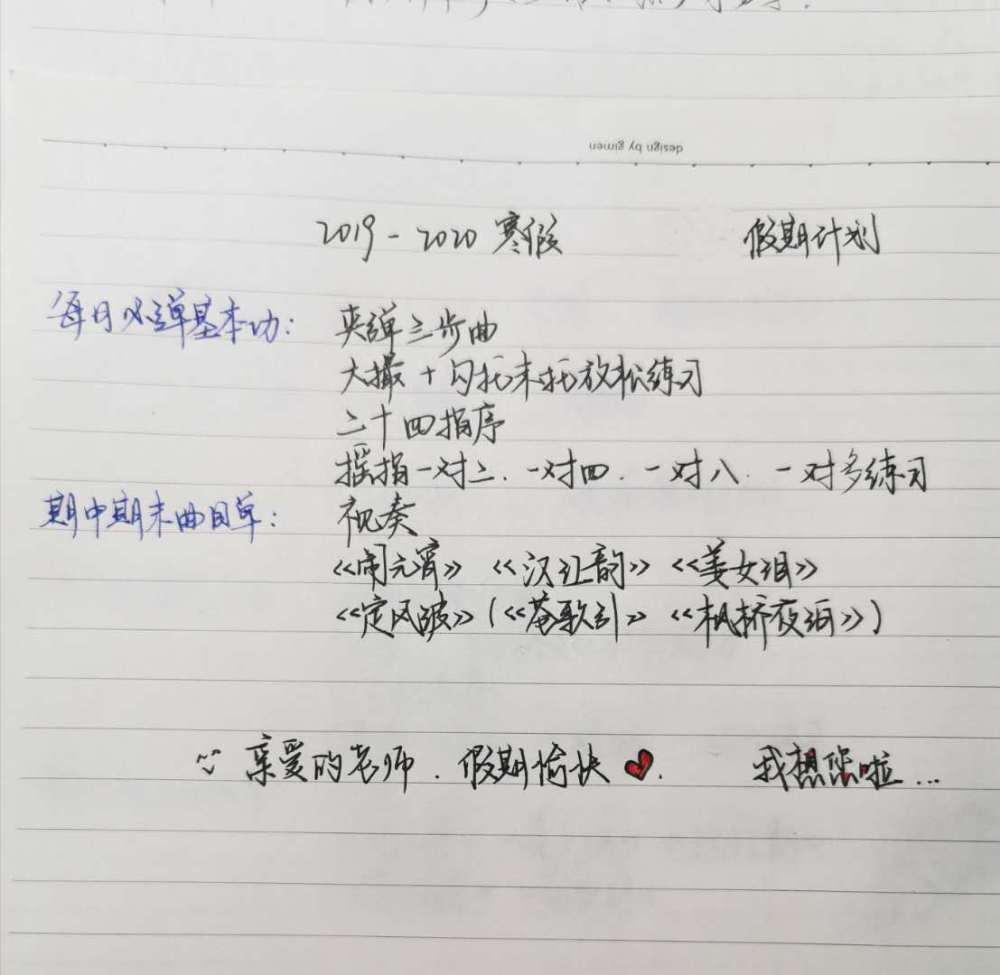 design by gimen
2019-2020 寒假 假期计划
每日必弹基本功: 夹弹三步曲
大撮+勾托抹托放松练习
二十四指序
摇指一对二、一对四、一对八、一对多练习
期中期末曲目单: 视奏
《闹元宵》 《汉江韵》 《姜女泪》
《定风波》(《莲歌引》 《枫桥夜泊》)
亲爱的老师、假期愉快 ❤. 我想您啦...